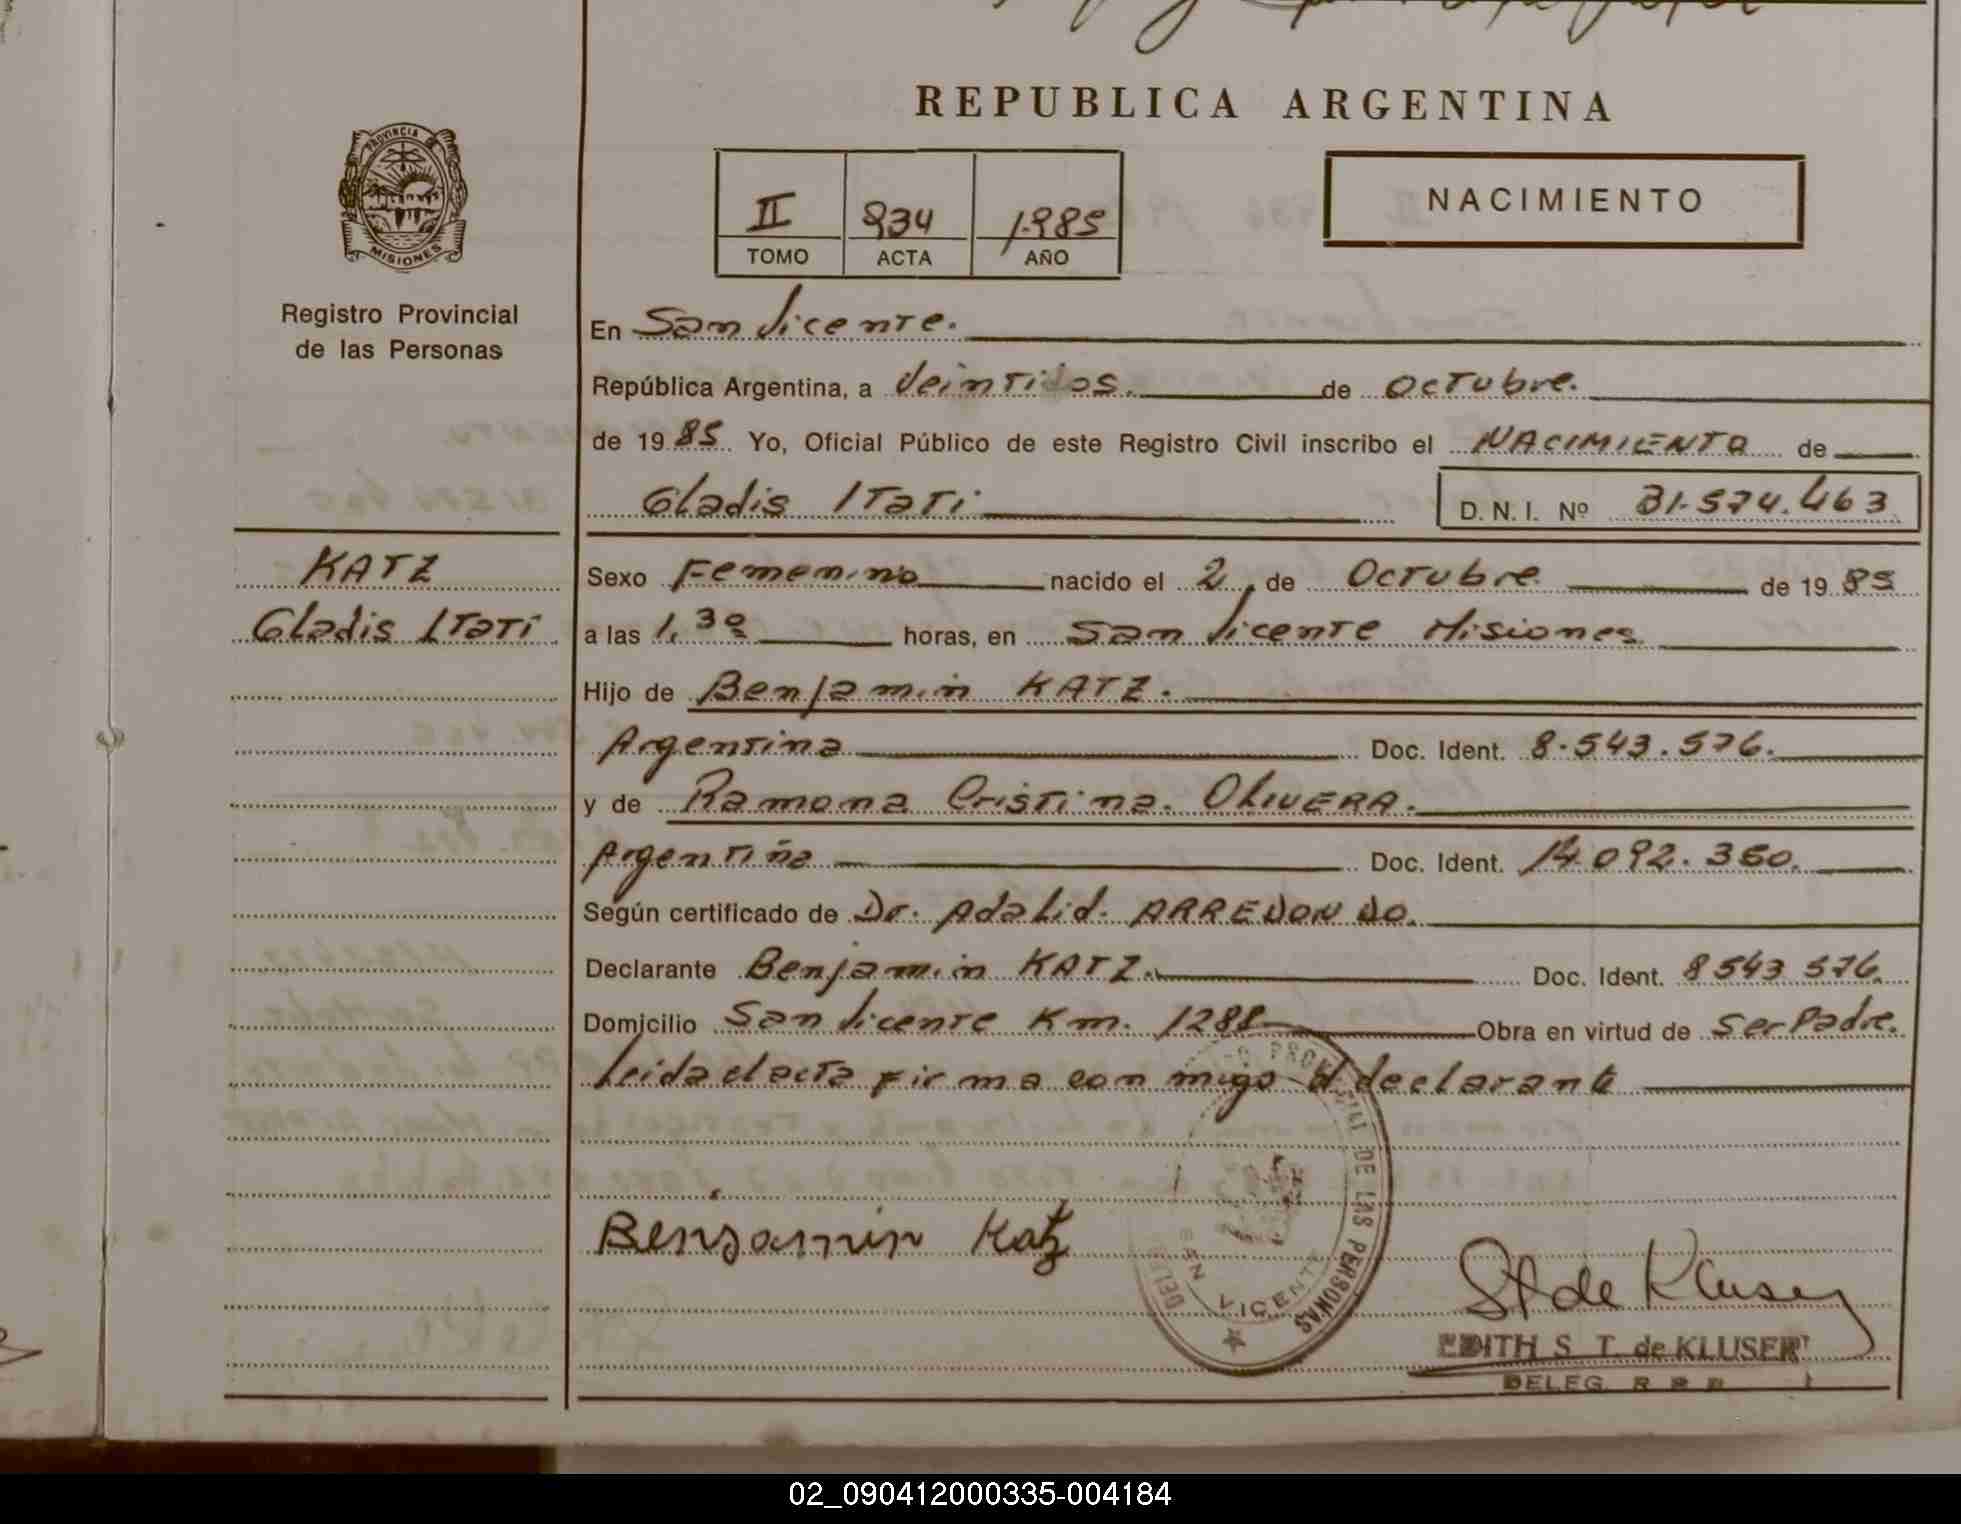 REPUBLICA ARGENTINA
PROVINCIA
MISIONES
II 934 1.985
TOMO ACTA AÑO
NACIMIENTO
Registro Provincial
de las Personas
En San Vicente.
República Argentina, a Veintidos. de Octubre.
de 1985 Yo, Oficial Público de este Registro Civil inscribo el NACIMIENTO de
Gladis Itati D. N. I. Nº 31.574.463
KATZ
Gladis Itati
Sexo Femenino nacido el 2 de Octubre de 1985
a las 1,30 horas, en San Vicente Misiones
Hijo de Benjamin KATZ.
Argentina Doc. Ident. 8.543.576.
y de Ramona Cristina. OLIVERA.
Argentiña Doc. Ident. 14.092.350.
Según certificado de Dr. Adalid. ARREDONDO.
Declarante Benjamin KATZ. Doc. Ident. 8543 576.
Domicilio San Vicente Km. 1288 Obra en virtud de Ser Padre.
Leida el acta firma con migo el declarante
DE LAS PERSONAS
SAN VICENTE
Benjamin Katz
St de Kluser
EDITH S. T. de KLUSER
DELEG. R. P. P.
02_090412000335-004184